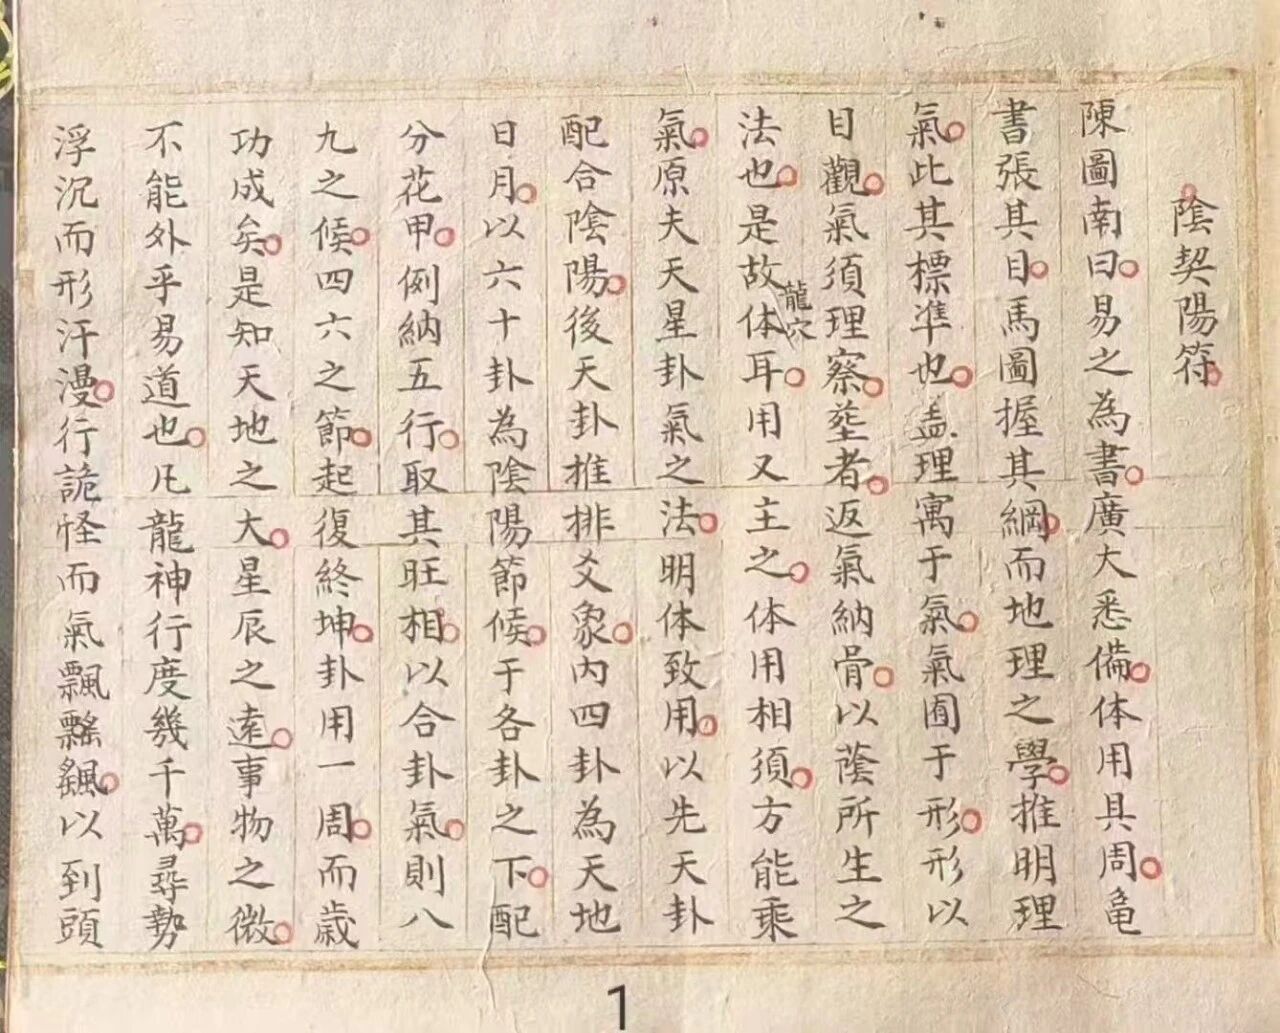 陰契陽符
陳圖南曰易之為書廣大悉備体用具周龟
書張其目馬圖握其綱而地理之學推明理
氣此其標準也盖理寓于氣氣囿于形形以
目觀氣須理察塟者返氣納骨以蔭所生之
法也是故体龍穴耳用又主之体用相須方能乘
氣原夫天星卦氣之法明体致用以先天卦
配合陰陽後天卦推排爻象内四卦為天地
日月以六十卦為陰陽節候于各卦之下配
分花甲例納五行取其旺相以合卦氣則八
九之候四六之節起復終坤卦用一周而歲
功成矣是知天地之大星辰之遠事物之微
不能外乎易道也凡龍神行度幾千萬尋勢
浮沉而形汗漫行詭怪而氣飄飄颻以到頭
1